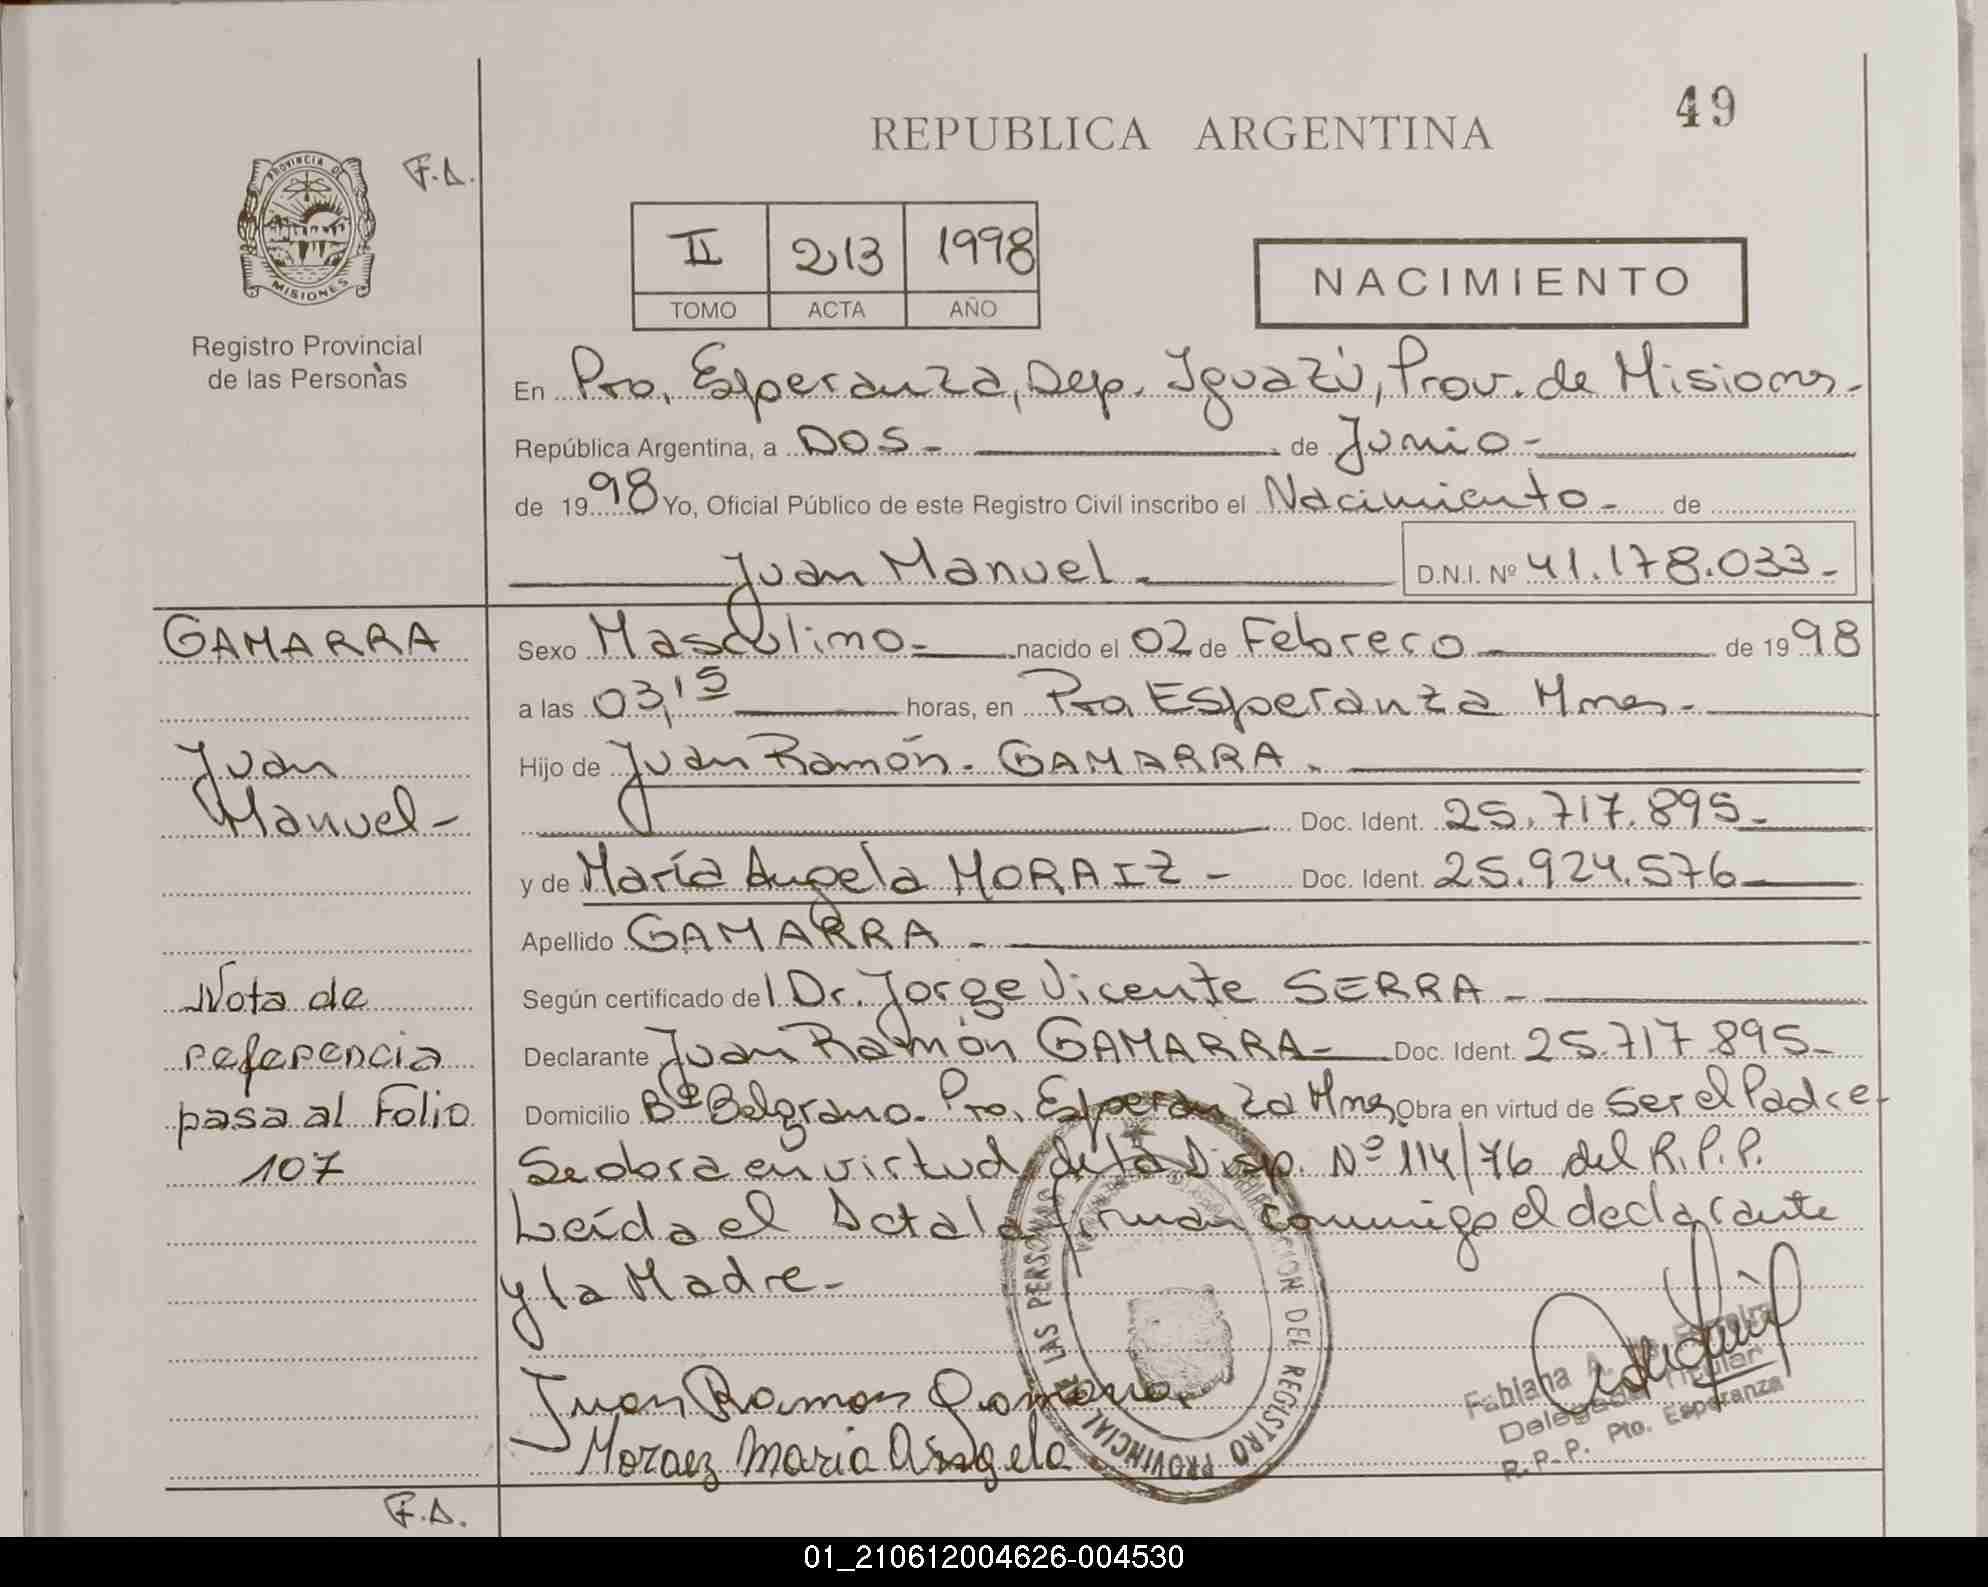 49
REPUBLICA ARGENTINA
F.A.
PROVINCIA DE
MISIONES
Registro Provincial
de las Personas
II 213 1998
TOMO ACTA AÑO
NACIMIENTO
En Pto. Esperanza, Dep. Iguazú, Prov. de Misiones.-
República Argentina, a DOS- de Junio-
de 1998 Yo, Oficial Público de este Registro Civil inscribo el Nacimiento- de
Juan Manuel- D.N.I. Nº 41.178.033.-
GAMARRA
Juan
Manuel-
Nota de
referencia
pasa al Folio
107
Sexo Masculino- nacido el 02 de Febrero de 1998
a las 03,15 horas, en Pto. Esperanza Mnes-
Hijo de Juan Ramón- GAMARRA.
Doc. Ident. 25.717.895-
y de María Angela MORAIZ- Doc. Ident. 25.924.576
Apellido GAMARRA-
Según certificado del Dr. Jorge Vicente SERRA-
Declarante Juan Ramón GAMARRA- Doc. Ident. 25.717.895-
Domicilio Bº Belgrano- Pto. Esperanza Mnes Obra en virtud de ser el Padre-
Se obra en virtud de la Disp. Nº 114/76 del R.P.P.
Leída el Acta la firman conmigo el declarante
y la Madre-
Juan Ramon Gamarra
Moraez Maria Angela
LAS PERSONAS
DEL REGISTRO PROVINCIAL
Fabiana A.
Titular
R.P.P. Pto. Esperanza
F.A.
01_210612004626-004530